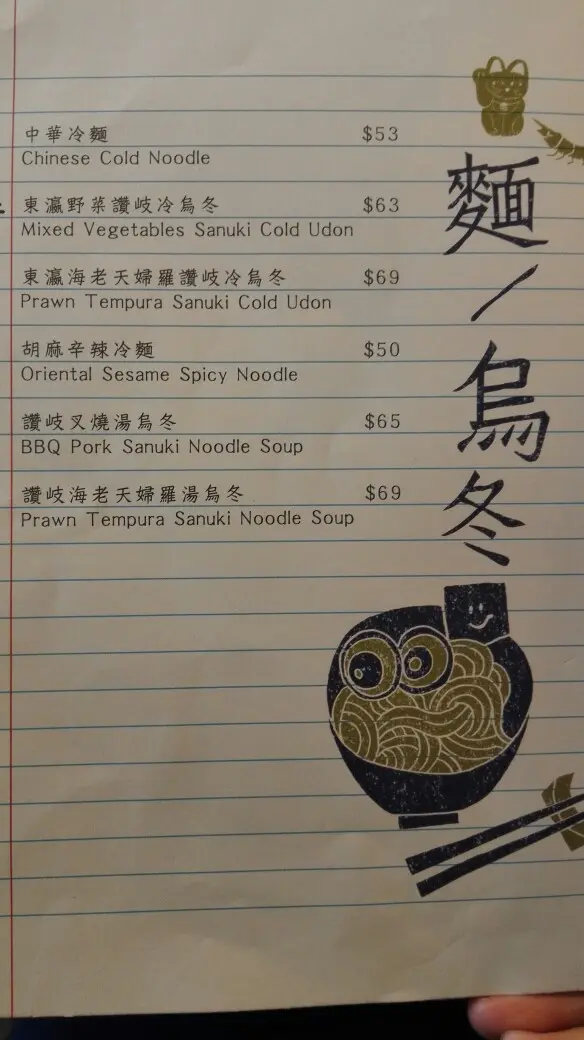 中華冷麵 $53
Chinese Cold Noodle
東瀛野菜讚岐冷烏冬 $63
Mixed Vegetables Sanuki Cold Udon
東瀛海老天婦羅讚岐冷烏冬 $69
Prawn Tempura Sanuki Cold Udon
胡麻辛辣冷麵 $50
Oriental Sesame Spicy Noodle
讚岐叉燒湯烏冬 $65
BBQ Pork Sanuki Noodle Soup
讚岐海老天婦羅湯烏冬 $69
Prawn Tempura Sanuki Noodle Soup
麵/烏冬